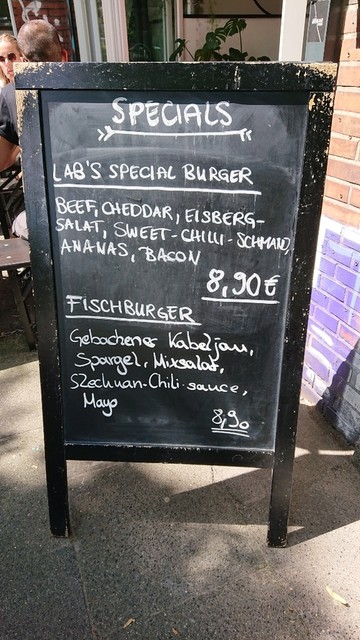 SPECIALS
LAB'S SPECIAL BURGER
BEEF, CHEDDAR, EISBERG-
SALAT, SWEET-CHILLI-SCHMAND,
ANANAS, BACON
8,90€
FISCHBURGER
Gebackener Kabeljau,
Spargel, Mixsalat,
Szechuan-Chili-sauce,
Mayo
8,90